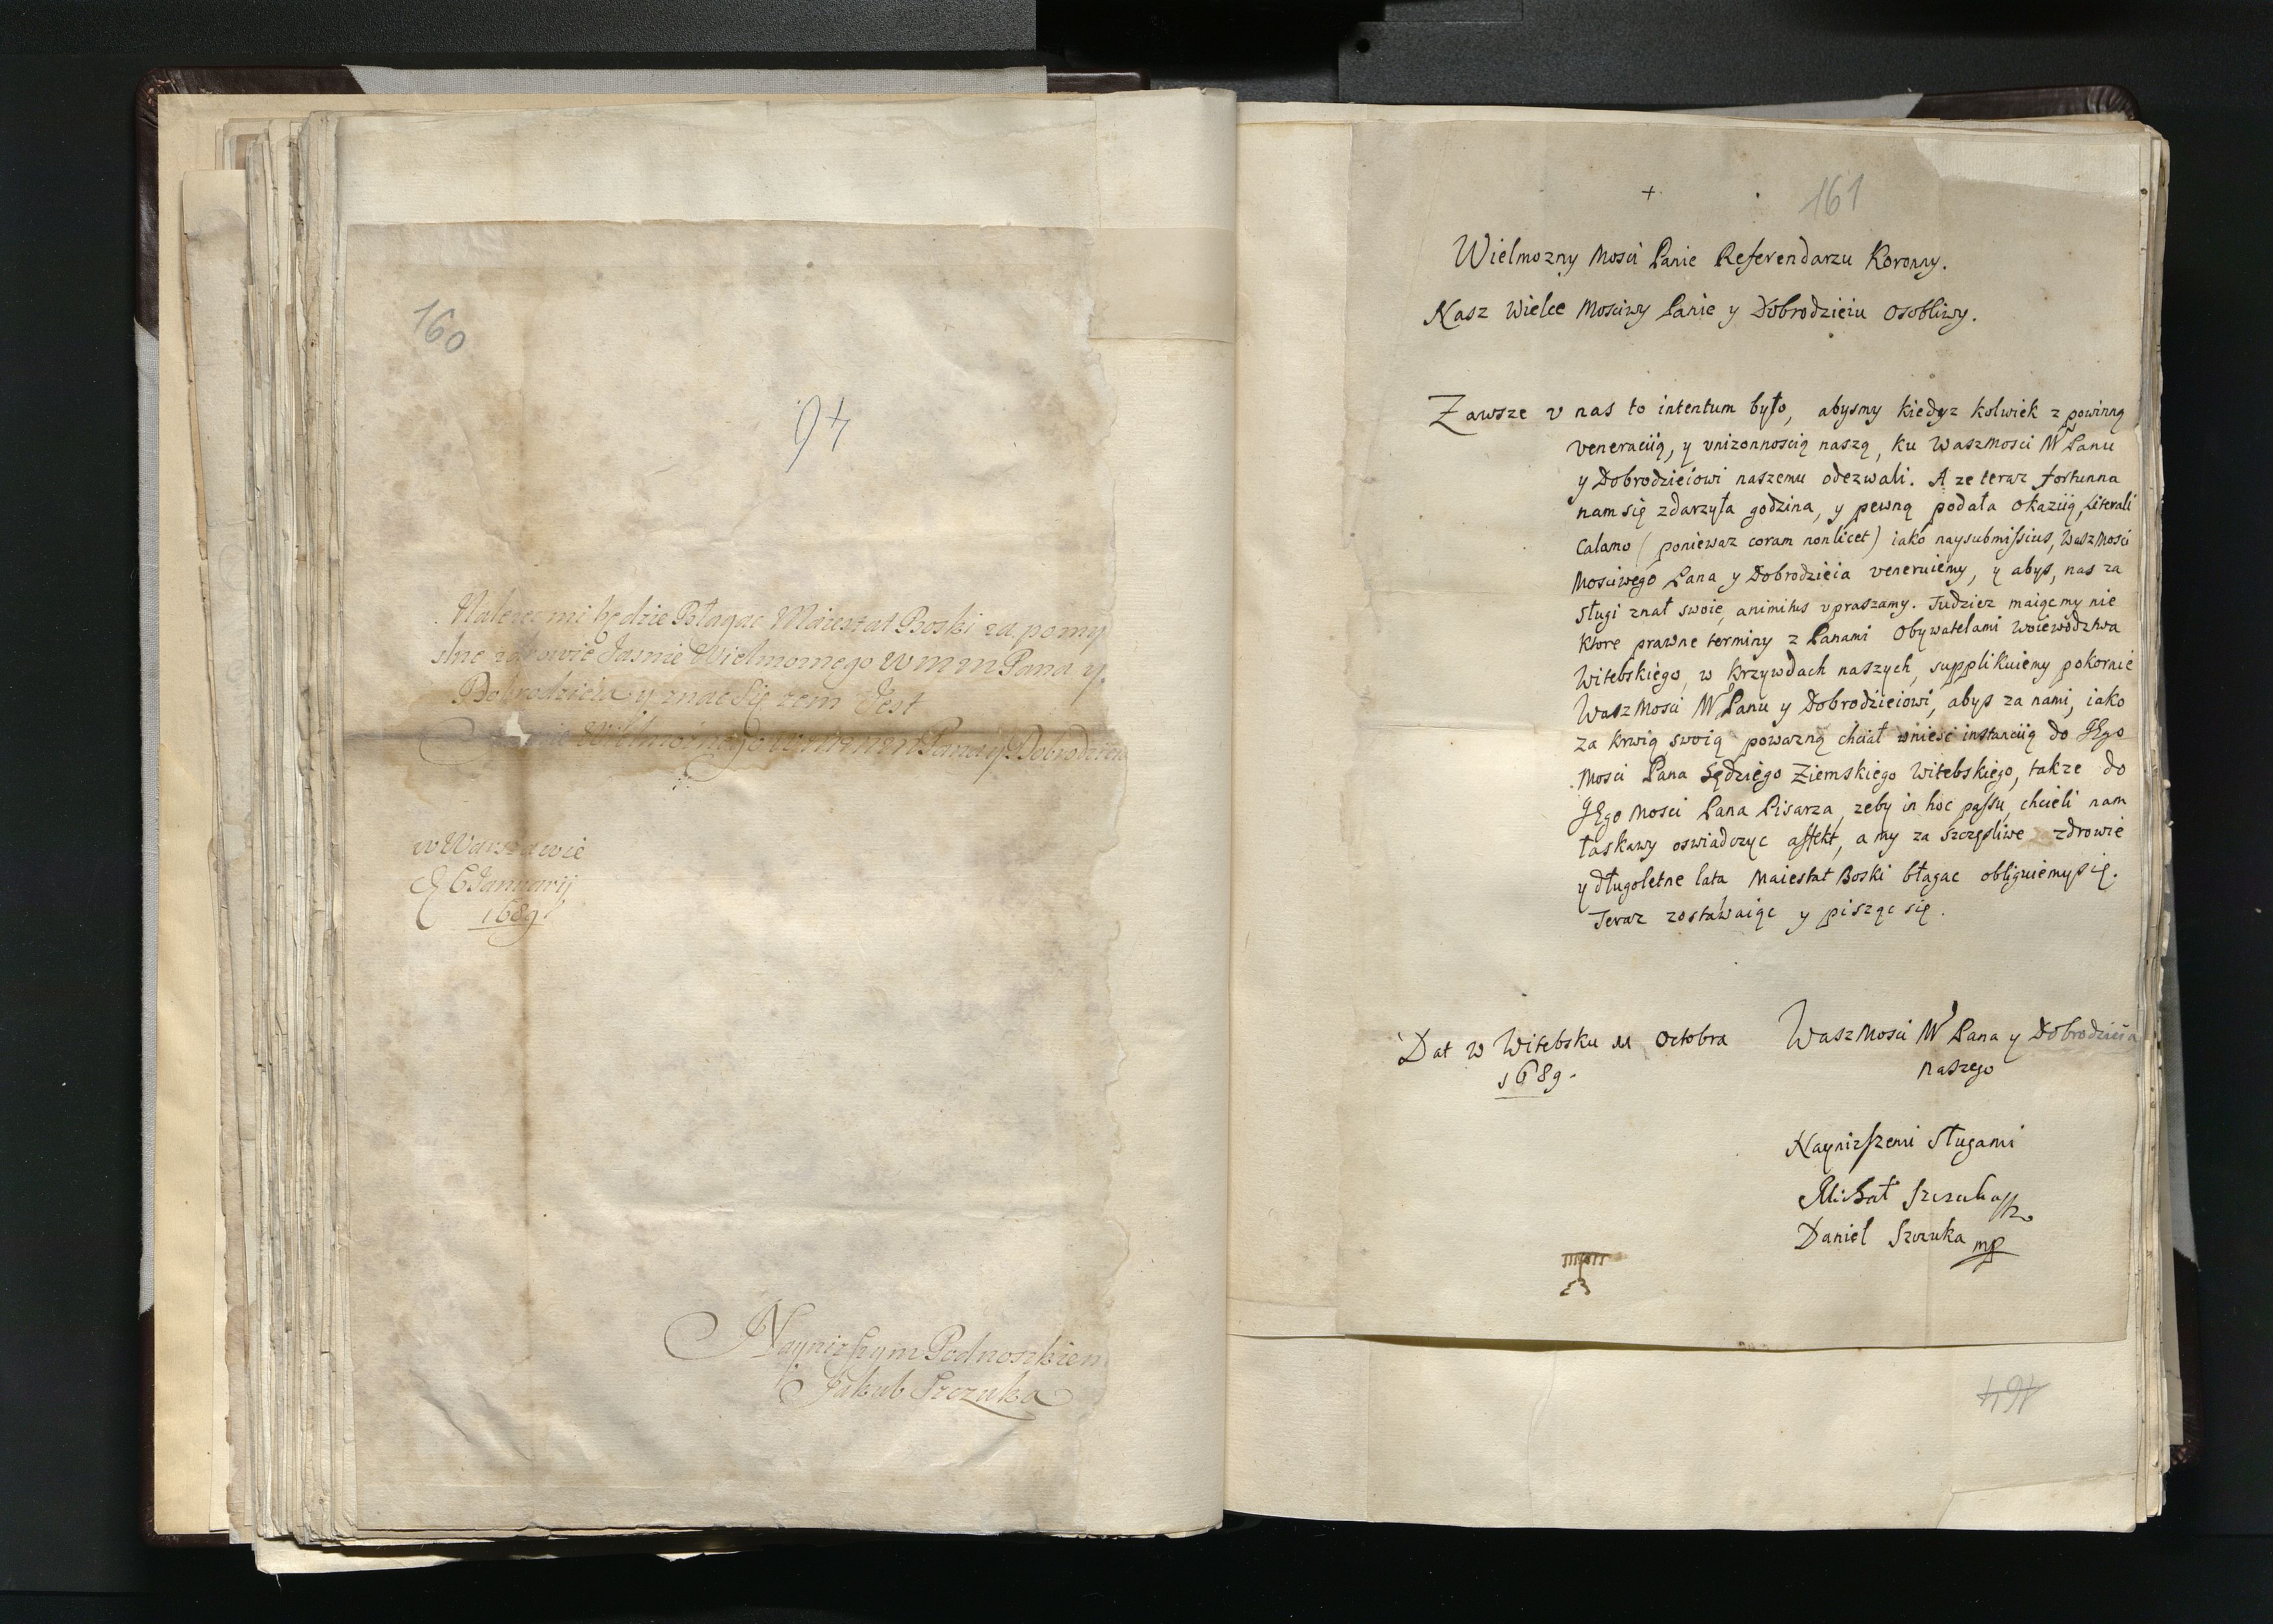 160
94
Nalezec mi będzie Błagac Maiestat Boski za pomy
slne zdrowie Jasnie Wielmoznego WMM Pana y
Dobrodzieia y znac się zem Jest
Wielmoznego WMM Pana y Dobrodzieia
w Warszawie
6 Januarij
1689
Nayniższym Podnoszkiem
Jakub Szczuka
+
161
Wielmozny Mosci Panie Referendarzu Koronny.
Nasz Wielce Mosciwy Panie y Dobrodzieiu Osobliwy.
Zawsze v nas to intentum było, abysmy kiedyz kolwiek z powinną
veneraciią, y vnizonnoscią naszą, ku Waszmosci Mo Panu
y Dobrodzieiowi naszemu odezwali. A ze teraz fortunna
nam się zdarzyła godzina, y pewną podała okaziią, Literali
Calamo (poniewaz coram non licet) iako naysubmissius, Waszmosci
Mosciwego Pana y Dobrodzieia veneruiemy, y abyś, nas za
sługi znał swoie, animitus vpraszamy. Tudziez maiącmy nie
ktore prawne terminy z Panami Obywatelami Woiewodztwa
Witebskiego, w krzywdach naszych, supplikuiemy pokornie
Waszmosci Mo Panu y Dobrodzieiowi, abyś za nami, iako
za krwią swoią powazną chciał wnieść instanciią do JEgo
Mosci Pana Sędziego Ziemskiego Witebskiego, takze do
JEgo Mosci Pana Pisarza, zeby in hoc passu, chcieli nam
łaskawy oswiadczyc affekt, a my za szczęsliwe zdrowie
y długoletne lata Maiestat Boski błagac obliguiemy się.
Teraz zostawaiąc y pisząc się.
Dat w Witebsku 11 Octobra
1689.
Waszmosci Mo Pana y Dobrodzieia
naszego
Nayniższemi Sługami
Michał Szczuka
Daniel Szczuka mp
164